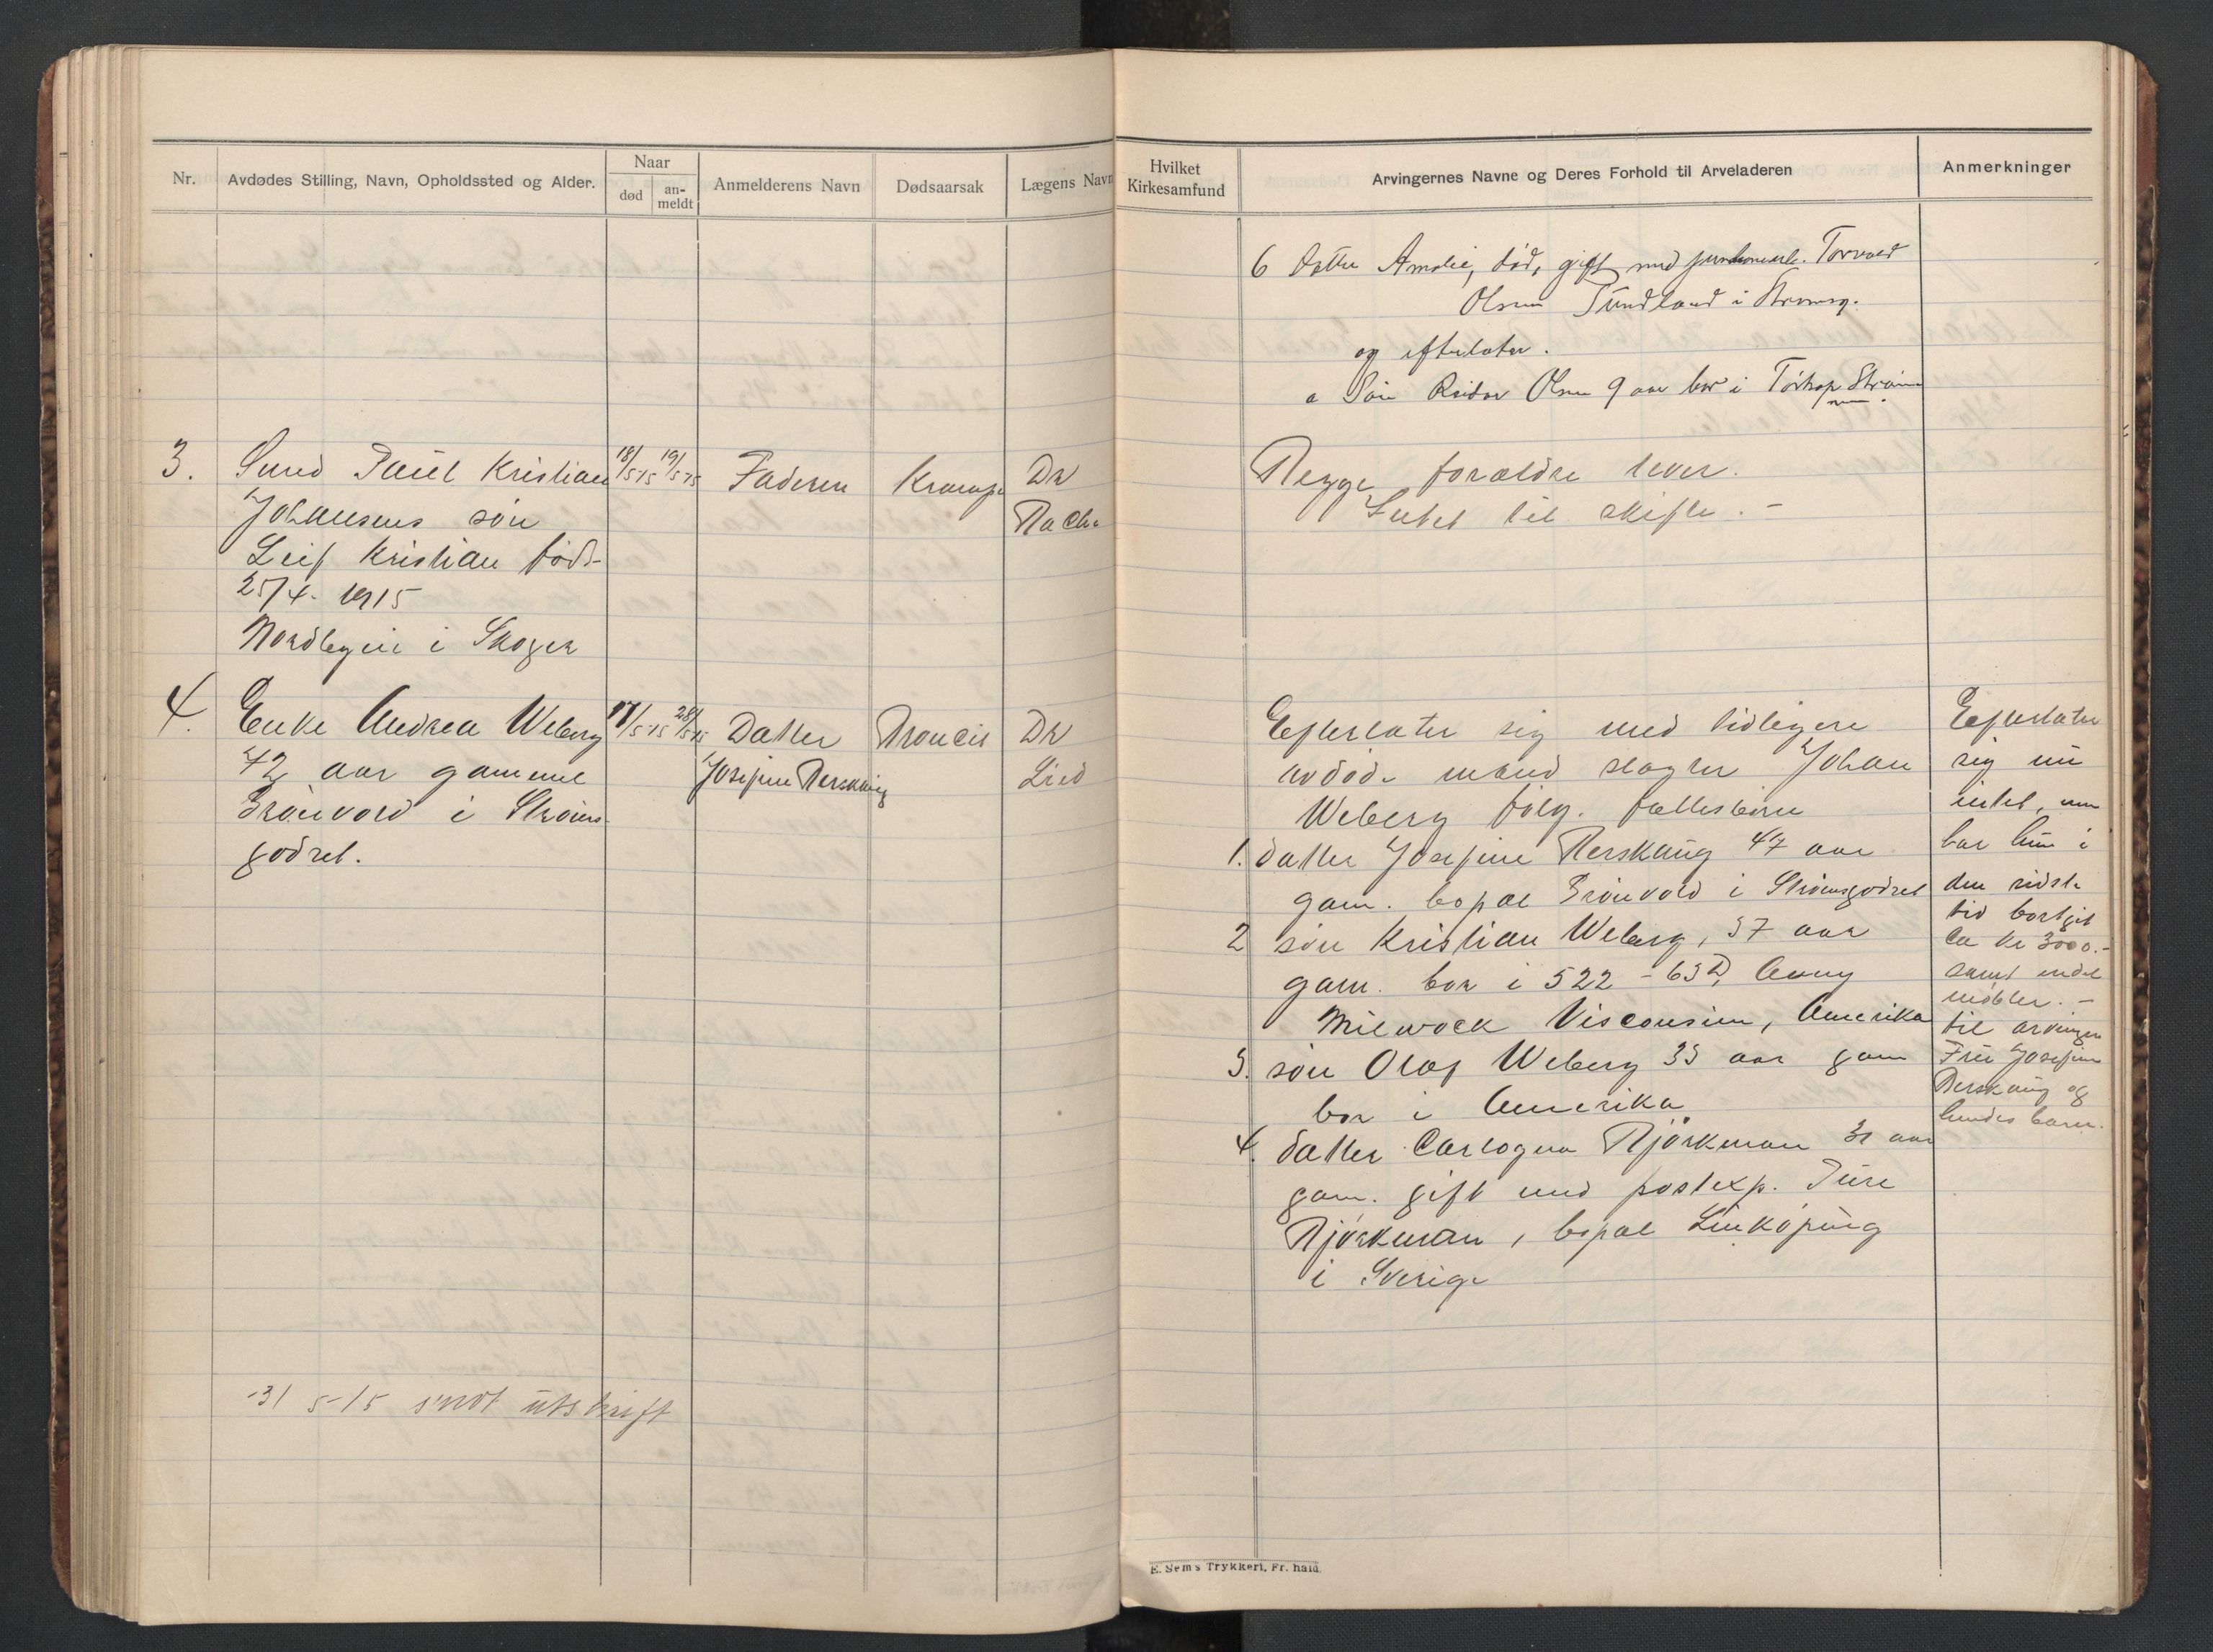 Nr.
Avdødes Stilling, Navn, Opholdssted og Alder.
Naar
død
an-
meldt
Anmelderens Navn
Dødsaarsak
Lægens Navn
3. Smed Paul Kristian 18/5-15 19/5-15 Faderen Krampe Dr
Johansens søn
Leif Kristian født
25/4. 1915
Nordbyen i Skoger
4. Enke Andrea Weberg 17/5-15 28/5-15 Datter Broncit Dr
72 aar gammel Josefine Berskaug Lied
Grönvold i Ströms-
godset.
31 5-15 sendt utskrift
Hvilket
Kirkesamfund
Arvingernes Navne og Deres Forhold til Arveladeren
Anmerkninger
6 datter Amalie, död, gift med Torvald
Olsen Sundland i Strømsg.
og efterlater.
a Sön Reidar Olsen 9 aar bor i
Begge foræld​re lever.
Intet til skifte. -
Efterlater sig med tidligere
avdöde mand slagter Johan
Weberg fölg. fællesbörn
1. datter Josefine Berskaug 47 aar
gam. bopæl Grönvold i Strömsgodset
2 sön Kristian Weberg, 37 aar
gam. bor i 522 - 63D,
Milwock Visconsien, Amerika
3. sön Olaf Weberg 33 aar gam
bor i Amerika.
4. datter Bjørkman 31 aar
gam. gift med postexp. Ture
Bjørkman, bopæl Linköping
i Sverige
Efterlater
sig nu
intet, men
har hun i
den sidste
tid bortgit
ca kr 3000.-
samt endel
möbler. -
til arvingen
Fru Josefine
Berskaug og
hendes barn.
E. Sem's Trykkeri, Fr. hald.